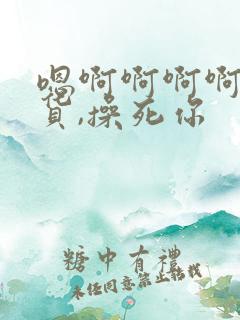 嗯啊啊啊啊
,操死你
糖中有禮
未任同意禁止转载